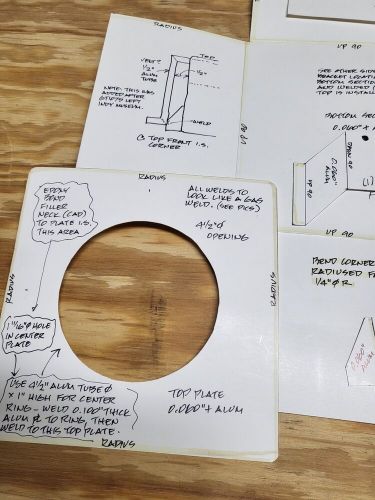 RADIUS
VENT?
1/2"
ALUM
TUBE
TOP
1/2"
NOTE: THIS WAS
ADDED AFTER
LEFT
INDY MUSEUM.
WELD
@ TOP FRONT I.S.
CORNER
UP 90
UP 90
SEE OTHER SIDE
BRACKET LOCATIO
BOTTOM SECTIO
AND WELDED
TOP IS INSTALL
BOTTOM SEC
0.060" + A
0.060"
ALUM
UP 90
DOWN 90
(1)
UP 90
BEND CORNER
RADIUSED F
1/4" Ø R.
0.060"
ALUM
RADIUS
EPOXY
BOND
FILLER
NECK (CAD)
TO PLATE I.S.
THIS AREA
ALL WELDS TO
LOOK LIKE A GAS
WELD. (SEE PICS)
4 1/2" Ø
OPENING
RADIUS
RADIUS
1 11/16" Ø HOLE
IN CENTER
PLATE
USE 4 1/2" ALUM TUBE Ø
x 1" HIGH FOR CENTER
RING - WELD 0.100" THICK
ALUM PL TO RING, THEN
WELD TO THIS TOP PLATE.
TOP PLATE
0.060" + ALUM
RADIUS